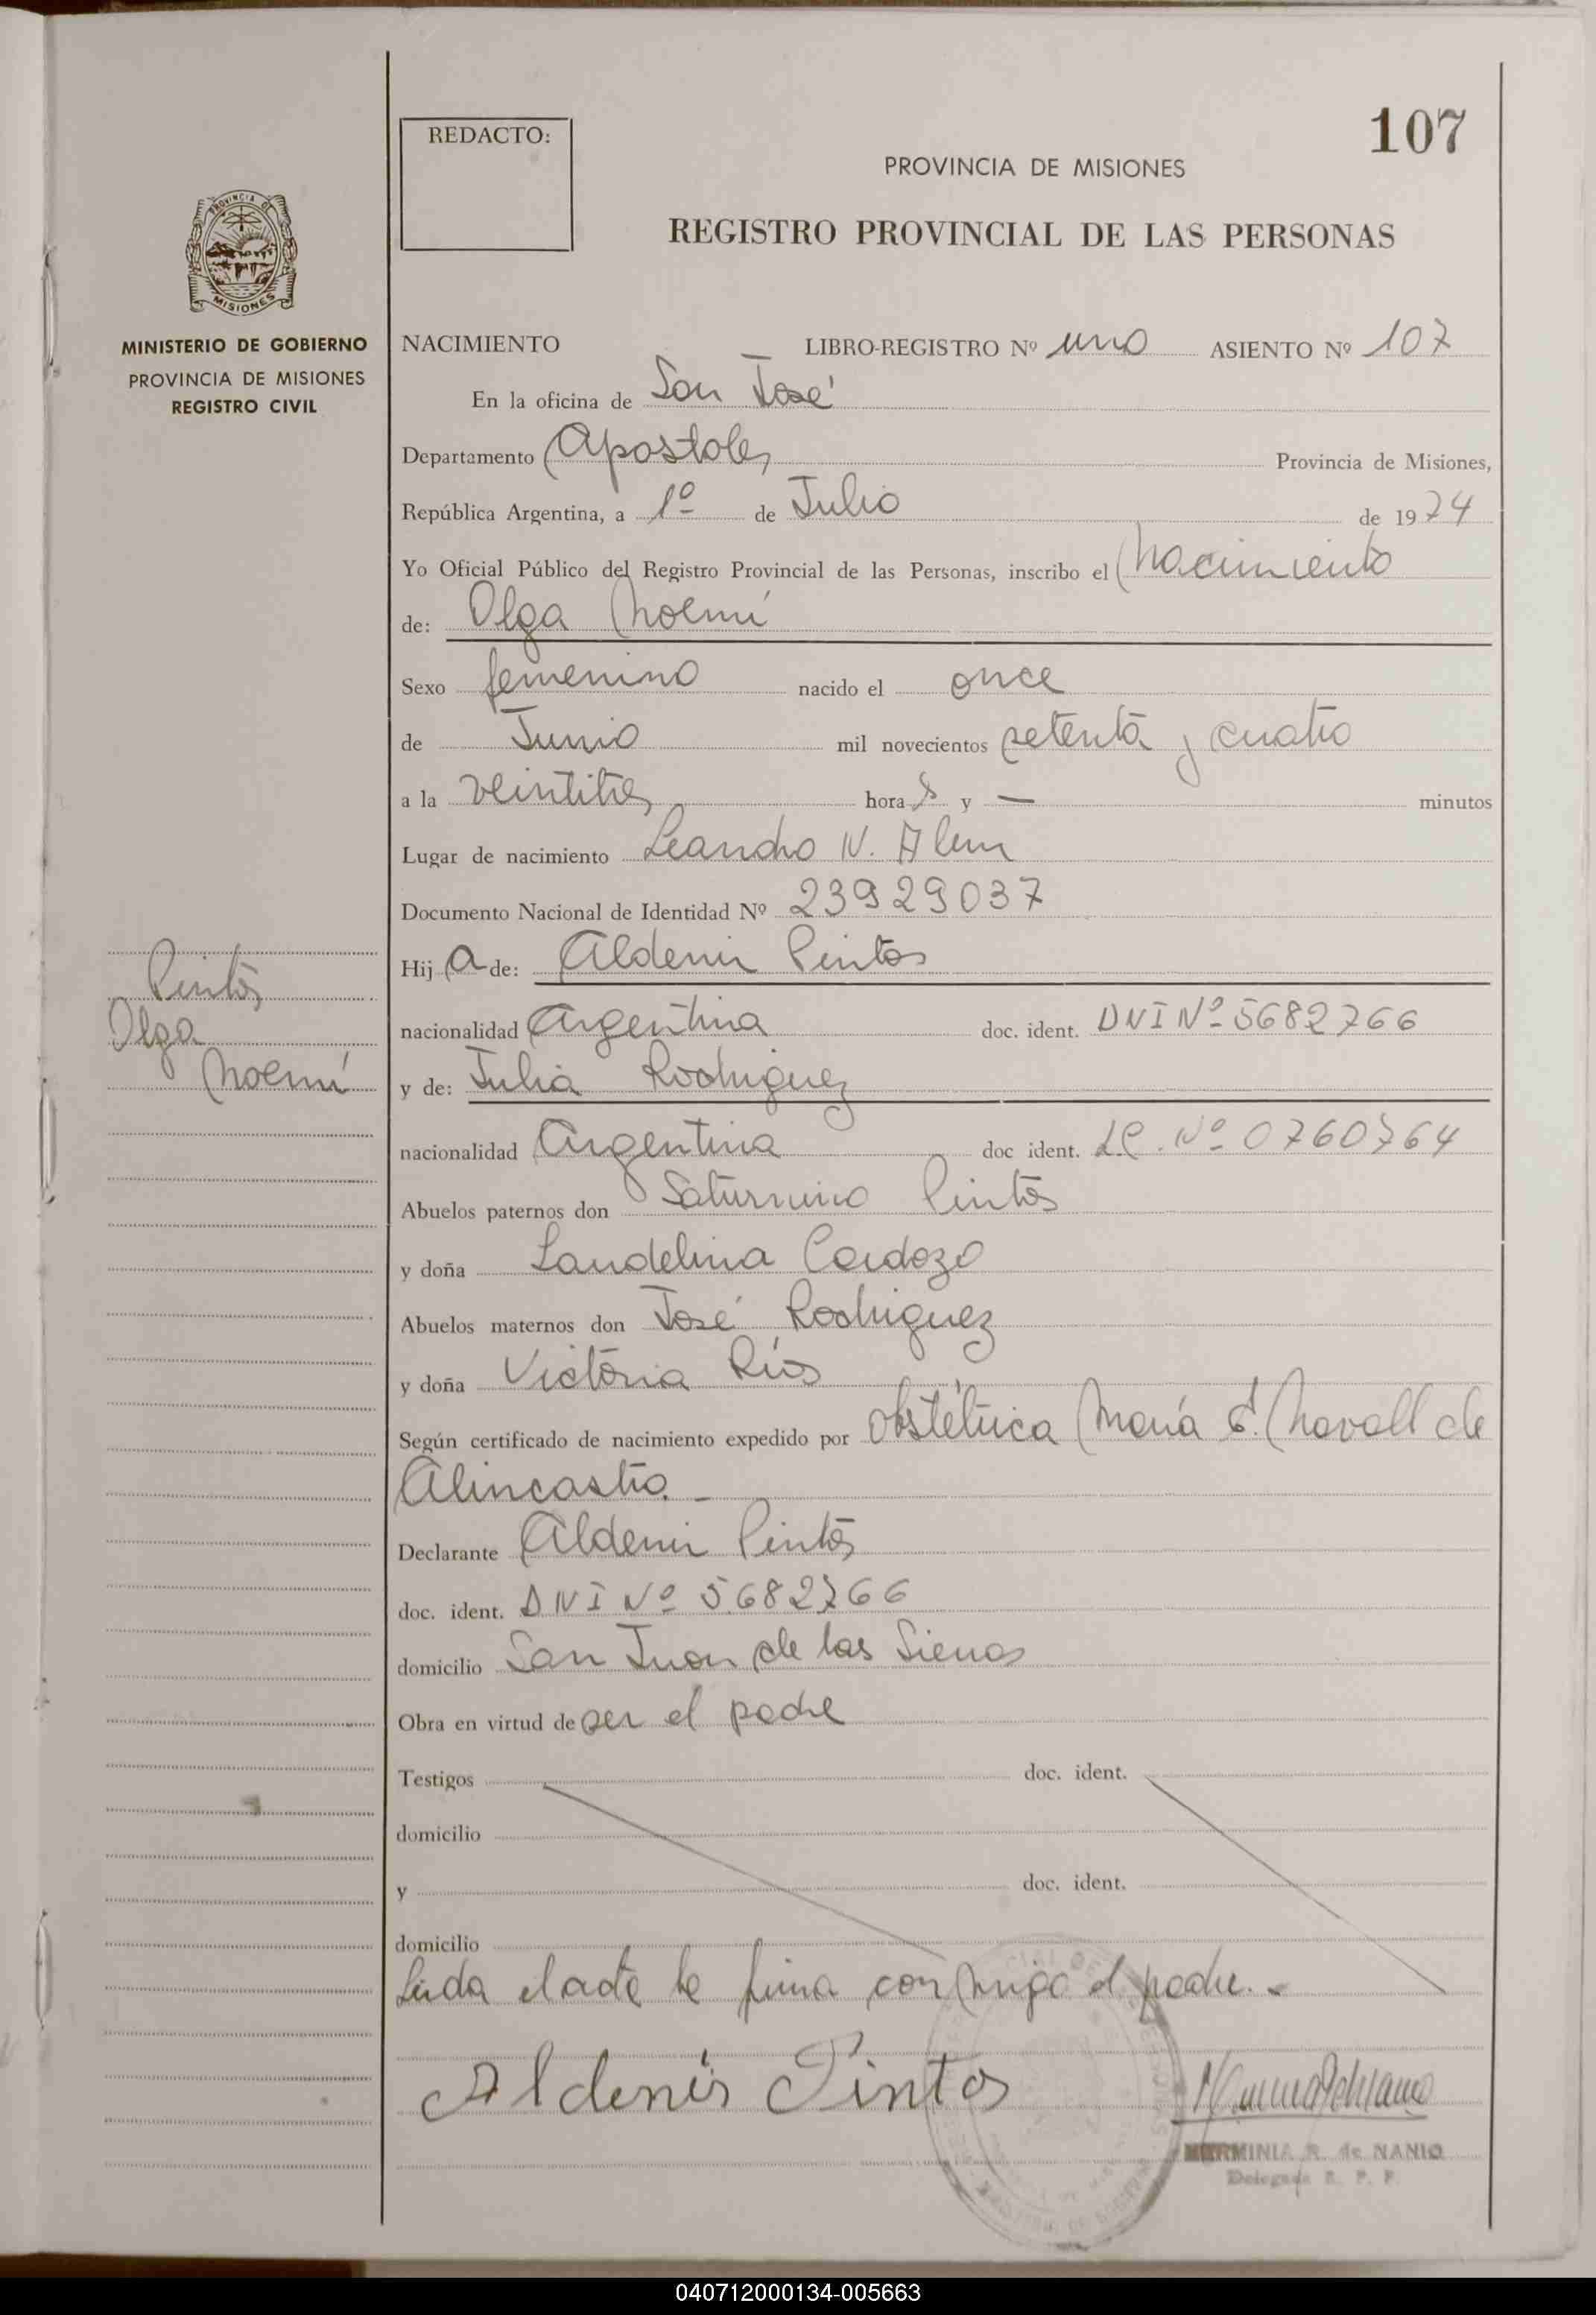 107
REDACTO:
PROVINCIA DE MISIONES
REGISTRO PROVINCIAL DE LAS PERSONAS
PROVINCIA DE
MISIONES
MINISTERIO DE GOBIERNO
PROVINCIA DE MISIONES
REGISTRO CIVIL
NACIMIENTO LIBRO-REGISTRO Nº uno ASIENTO Nº 107
En la oficina de San José
Departamento Apostoles Provincia de Misiones,
República Argentina, a 1º de Julio de 1974
Yo Oficial Público del Registro Provincial de las Personas, inscribo el Nacimiento
de: Olga Noemí
Sexo femenino nacido el once
de Junio mil novecientos setenta y cuatro
a la veintitres horas y — minutos
Lugar de nacimiento Leandro N. Alem
Documento Nacional de Identidad Nº 23929037
Hija de: Aldenir Pintos
nacionalidad Argentina doc. ident. DNI Nº 5682766
y de: Julia Rodriguez
nacionalidad Argentina doc ident. LC. Nº 0760764
Abuelos paternos don Saturnino Pintos
y doña Landelina Cardozo
Abuelos maternos don José Rodriguez
y doña Victoria Ríos
Según certificado de nacimiento expedido por Obstétrica María E. de
Alincastro. -
Declarante Aldenir Pintos
doc. ident. DNI Nº 5.682766
domicilio San Juan de las Sierras
Obra en virtud de ser el padre
Testigos doc. ident.
domicilio
y doc. ident.
domicilio
Leida el acta la firma conmigo el padre. -
Aldenir Pintos
HERMINIA R. de NANIO
Delegada R. P. P.
Pintos
Olga
Noemí
040712000134-005663